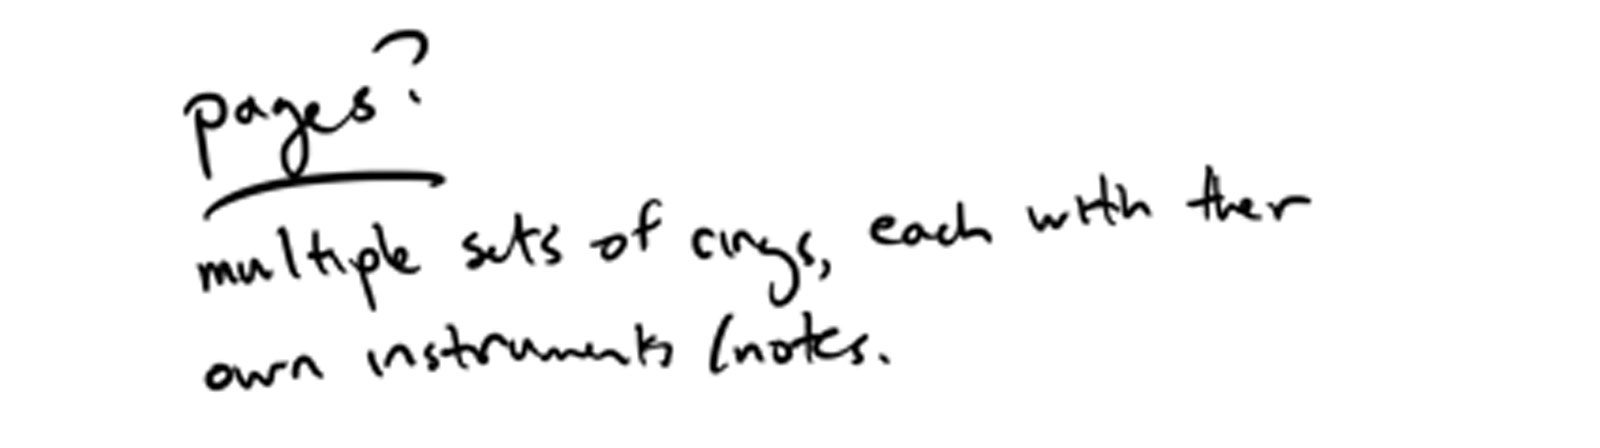 pages?
multiple sets of rings, each with their
own instruments/notes.